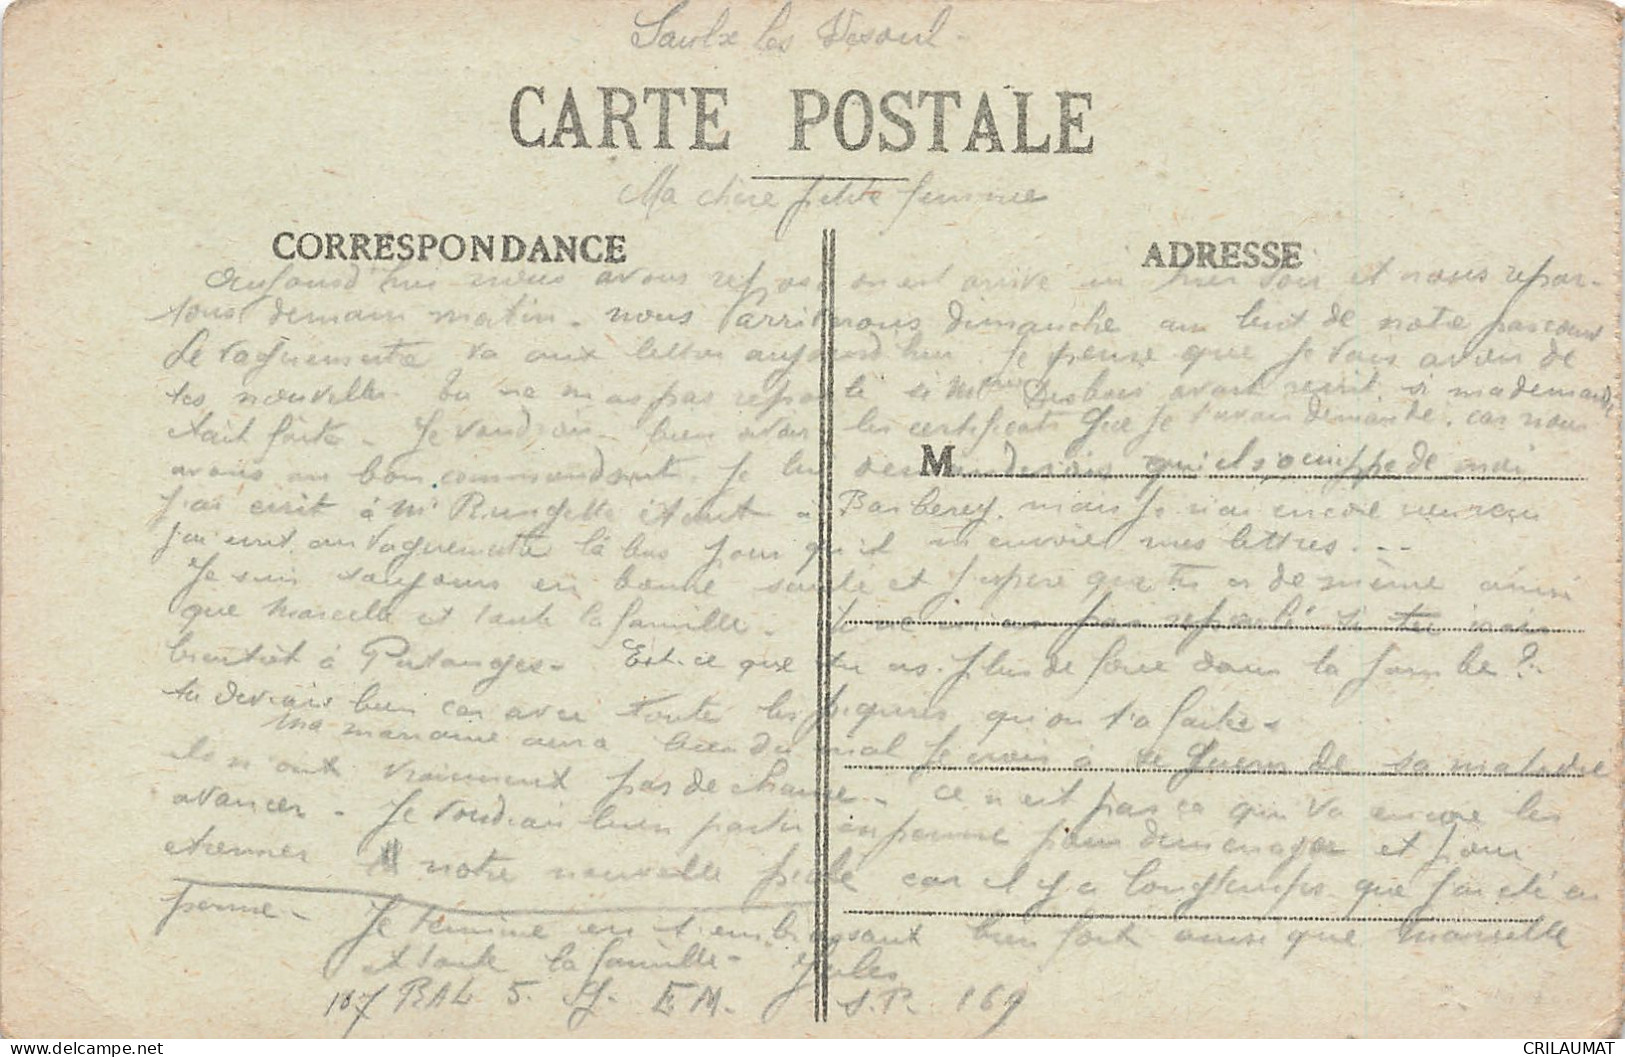 Saulx les Vesoul -
CARTE POSTALE
Ma chere petite femme
CORRESPONDANCE
ADRESSE
Aujourd'hui nous avons repos on est arrivé hier soir et nous repar-
tons demain matin. nous arriverons dimanche au but de notre parcours
Le vaguemestre va aux lettres aujourd'hui. Je pense que je vais avoir de
tes nouvelles. Tu ne m'as pas repondu si Mme Desbois avait recrit. si ma demande
était faite. Je voudrais bien avoir les certificats que je t'avais demandé. car nous
avons un bon commandant. Je lui demanderais qu'il s'occuppe de moi
M
J'ai ecrit à Mr étant à Barberey. mais je n'ai encore rien reçu
j'ai ecrit au vaguemestre là bas pour qu'il m'envoie mes lettres...
Je suis toujours en bonne santé et j'espere que tu es de même ainsi
que Marcelle et toute la famille. Tu ne m'as pas reparlé si tu irais
bientôt à Putanges. Est-ce que tu as plus de force dans la jambe ?
tu devrais bien car avec toutes les piqures qu'on t'a faites.
Ma marraine aura bien du mal je crois à se guerir de sa maladie
ils n'ont vraiment pas de chance. ce n'est pas ça qui va encore les
avancer. Je voudrais bien partir en perme pour demenager et pour
etrenner notre nouvelle car il y a longtemps que j'ai été en
perme. Je termine en t'embrassant bien fort ainsi que Marcelle
et toute la famille. Jules
107 BAL 5. G. E M. S.P. 169
CRILAUMAT